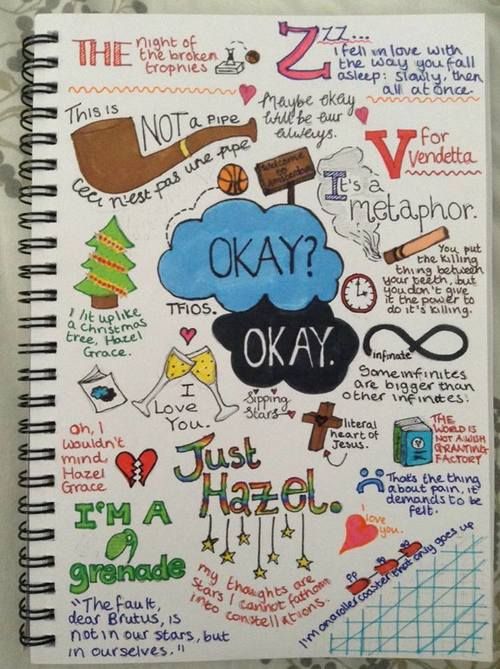 THE night of
the broken
trophies
Zzzz...
i fell in love with
the way you fall
asleep: slowly, then
all at once.
This is
NOT a PIPE
Ceci n'est pas une pipe
Maybe okay
will be our
always.
V for
Vendetta
Welcome
to
Amsterdam
It's a
metaphor.
You put
the killing
thing between
your teeth, but
you don't give
it the power to
do it's killing.
OKAY?
OKAY.
TFIOS.
I lit up like
a christmas
tree, Hazel
Grace.
infinate
Some infinites
are bigger than
other infinites.
I
Love
You.
Sipping
Stars
literal
heart of
Jesus.
THE
WORLD IS
NOT A WISH
GRANTING
FACTORY
Oh, I
wouldn't
mind,
Hazel
Grace
Just
Hazel.
That's the thing
about pain, it
demands to be
felt.
I'M A
grenade
I love
you.
my thoughts are
stars I cannot fathom
into constellations.
I'm on a roller coaster that only goes up
"The fault,
dear Brutus, is
not in our stars, but
in ourselves."